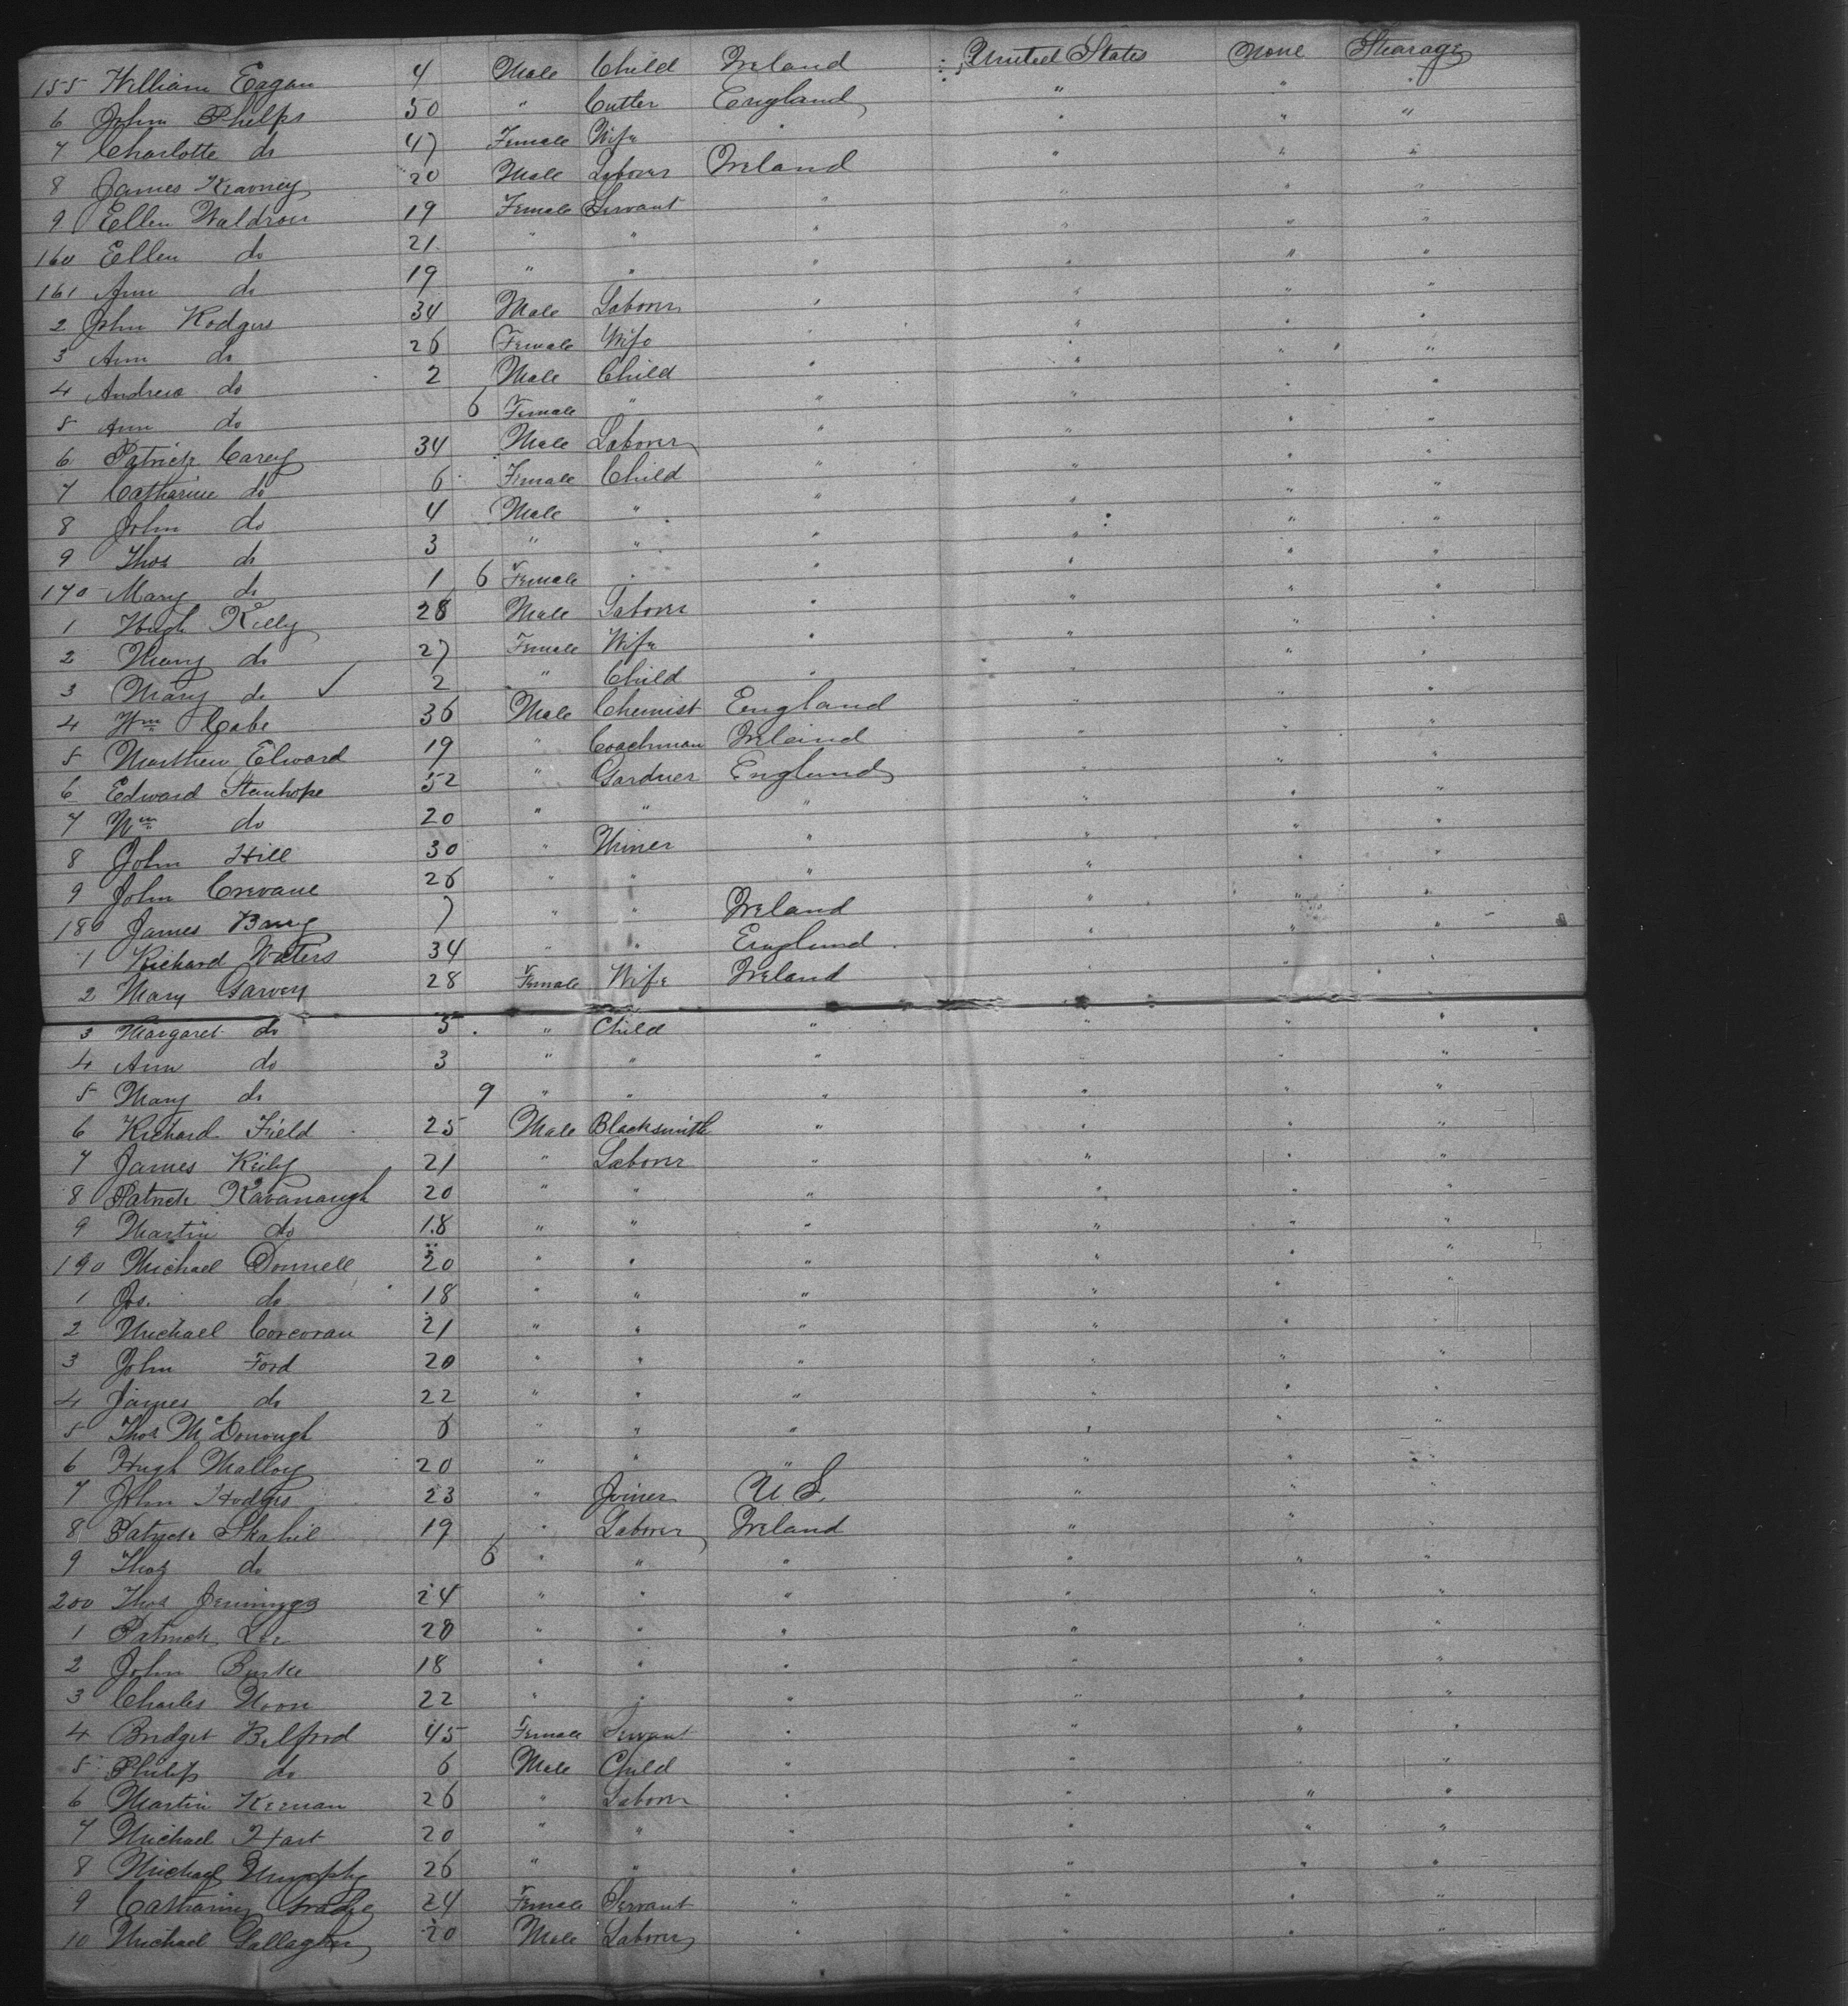 155 William Eagan 4 Male Child Ireland United States None Stearage
6 John Phelps 50 " Cutler England " " "
7 Charlotte do 47 Female Wife " " " "
8 James Kearney 20 Male Laborer Ireland " " "
9 Ellen Waldron 19 Female Servant " " " "
160 Ellen do 21 " " " " " "
161 Ann do 19 " " " " " "
2 John Rodgers 34 Male Laborer " " " "
3 Ann do 26 Female Wife " " " "
4 Andrew do 2 Male Child " " " "
5 Ann do 6 Female " " " " "
6 Patrick Carey 34 Male Laborer " " " "
7 Catharine do 6 Female Child " " " "
8 John do 4 Male " " " " "
9 Thos do 3 " " " " " "
170 Mary do 1 6 Female " " " " "
1 Hugh Kelly 28 Male Laborer " " " "
2 Mary do 27 Female Wife " " " "
3 Mary do ✓ 2 " Child " " " "
4 Wm Cabe 36 Male Chemist England " " "
5 Matthew Elward 19 " Coachman Ireland " " "
6 Edward Stanhope 52 " Gardner England " " "
7 Wm do 20 " " " " " "
8 John Hill 30 " Miner " " " "
9 John 26 " " " " " "
180 James Barry 7 " " Ireland " " "
1 Richard Waters 34 " " England " " "
2 Mary Garvey 28 Female Wife Ireland " " "
3 Margaret do 5 " Child " " " "
4 Ann do 3 " " " " " "
5 Mary do 9 " " " " " "
6 Richard Field 25 Male Blacksmith " " " "
7 James Kiely 21 " Laborer " " " "
8 Patrick Kavanaugh 20 " " " " " "
9 Martin do 18 " " " " " "
190 Michael Donnell 20 " " " " " "
1 Jos. do 18 " " " " " "
2 Michael Corcoran 21 " " " " " "
3 John Ford 20 " " " " " "
4 James do 22 " " " " " "
5 Thos McDonough 6 " " " " " "
6 Hugh Malloy 20 " " " " " "
7 John Hodges 23 " Joiner U.S. " " "
8 Patrick Skahil 19 " Laborer Ireland " " "
9 Thos do 6 " " " " " "
200 Thos Jennings 24 " " " " " "
1 Patrick Lee 20 " " " " " "
2 John Burke 18 " " " " " "
3 Charles Noon 22 " " " " " "
4 Bridget Belford 45 Female Servant " " " "
5 Philip do 6 Male Child " " " "
6 Martin Kernan 26 " Laborer " " " "
7 Michael Hart 20 " " " " " "
8 Michael Murphy 26 " " " " " "
9 Catharine 24 Female Servant " " " "
10 Michael Gallagher 20 Male Laborer " " " "